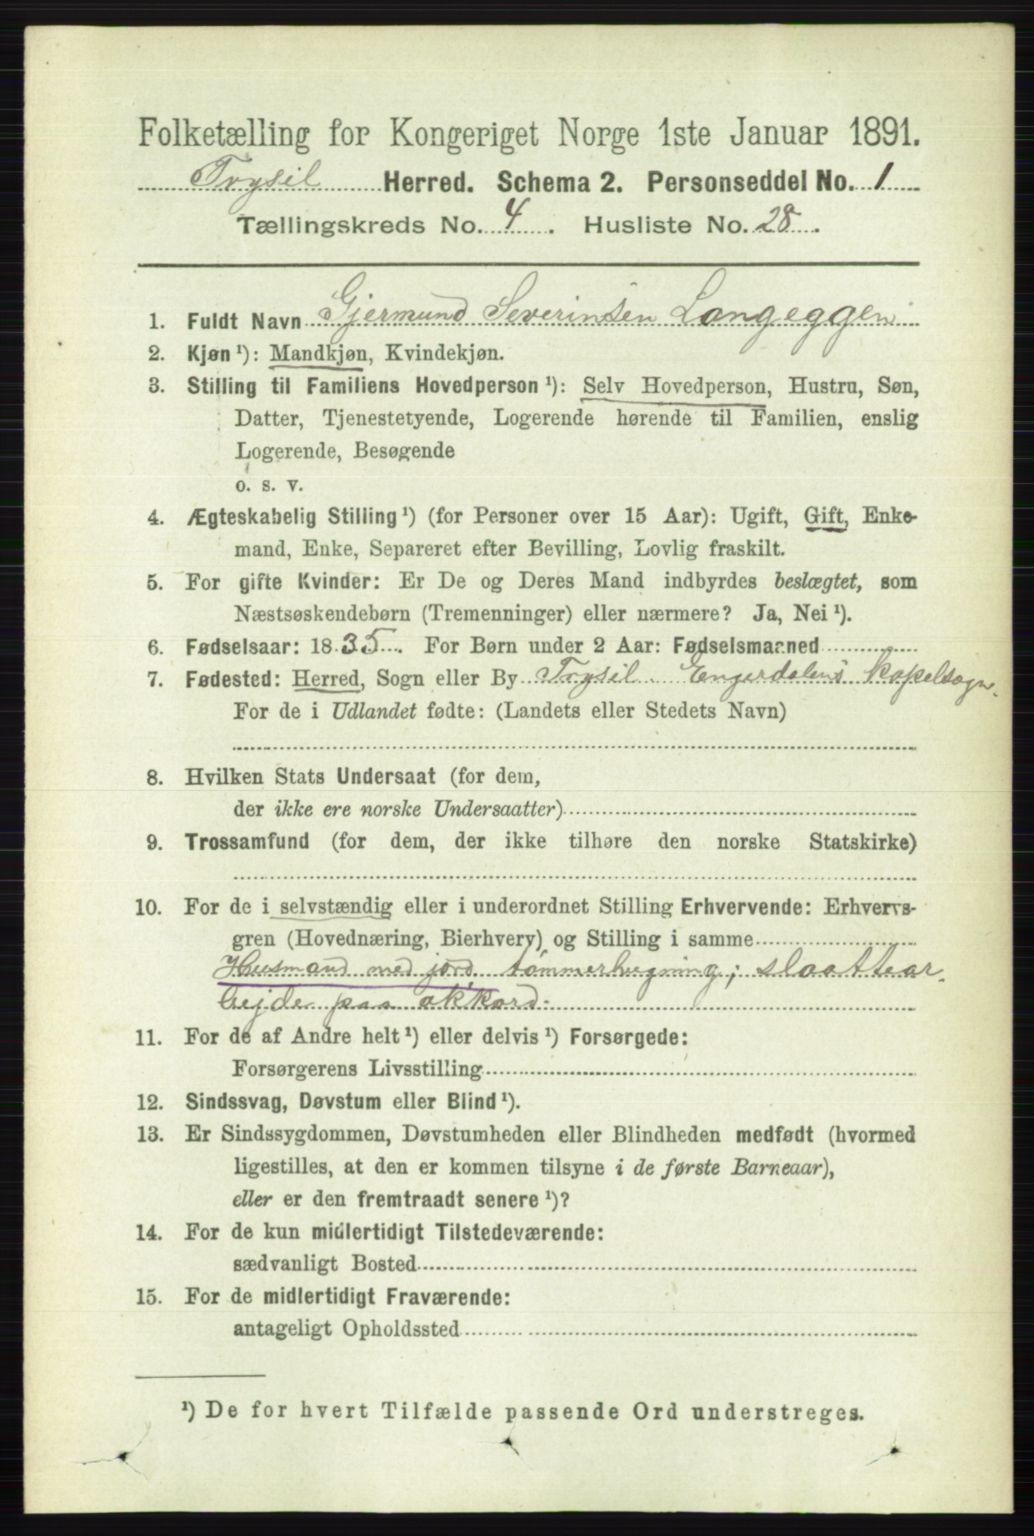 Folketælling for Kongeriget Norge 1ste Januar 1891.
Trysil Herred. Schema 2. Personseddel No. 1
Tællingskreds No. 4. Husliste No. 28.
1. Fuldt Navn Gjermund Severinsen Langeggen
2. Kjøn ¹): Mandkjøn, Kvindekjøn.
3. Stilling til Familiens Hovedperson ¹): Selv Hovedperson, Hustru, Søn,
Datter, Tjenestetyende, Logerende hørende til Familien, enslig
Logerende, Besøgende
o. s. v.
4. Ægteskabelig Stilling ¹) (for Personer over 15 Aar): Ugift, Gift, Enke-
mand, Enke, Separeret efter Bevilling, Lovlig fraskilt.
5. For gifte Kvinder: Er De og Deres Mand indbyrdes beslægtet, som
Næstsøskendebørn (Tremenninger) eller nærmere? Ja, Nei ¹).
6. Fødselsaar: 1835. For Børn under 2 Aar: Fødselsmaaned
7. Fødested: Herred, Sogn eller By Trysil. Engerdalens kapelsogn.
For de i Udlandet fødte: (Landets eller Stedets Navn)
8. Hvilken Stats Undersaat (for dem,
der ikke ere norske Undersaatter)
9. Trossamfund (for dem, der ikke tilhøre den norske Statskirke)
10. For de i selvstændig eller i underordnet Stilling Erhvervende: Erhvervs-
gren (Hovednæring, Bierhverv) og Stilling i samme
Husmand med jord, tømmerhugning; slaattear-
bejde paa akkord.
11. For de af Andre helt ¹) eller delvis ¹) Forsørgede:
Forsørgerens Livsstilling
12. Sindssvag, Døvstum eller Blind ¹).
13. Er Sindssygdommen, Døvstumheden eller Blindheden medfødt (hvormed
ligestilles, at den er kommen tilsyne i de første Barneaar),
eller er den fremtraadt senere ¹)?
14. For de kun midlertidigt Tilstedeværende:
sædvanligt Bosted
15. For de midlertidigt Fraværende:
antageligt Opholdssted
¹) De for hvert Tilfælde passende Ord understreges.